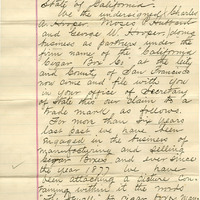 State of California.
We the undersigned Charles
W. Hooper, Moses
and George W. Hooper, doing
business as partners under the
firm name of the California
Cigar Box Co. at the City
and County of San Francisco
now come and file with you
in your office of Secretary
of State this our claim to a
Trade mark, as follows.
For more than six years
last past we have been
engaged in the business of
manufacturing and selling
Cigar Boxes and ever since
the year 1877 we have
been attaching a picture con-
taining within it the words
to cigar boxes man-